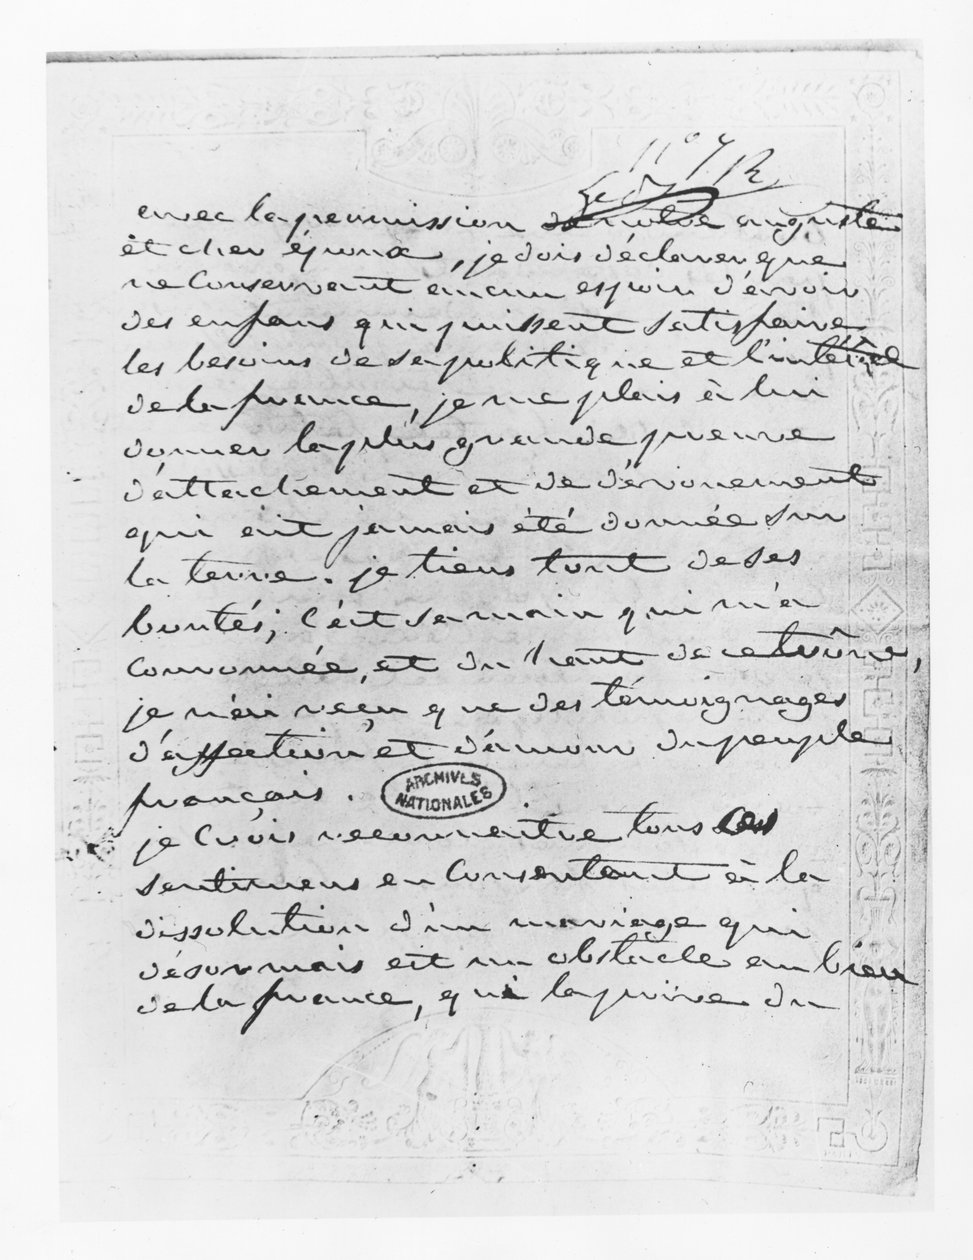 avec la permission de notre auguste
et cher époux, je dois déclarer que
ne Conservant aucun espoir d'avoir
des enfans qui puissent satisfaire
les besoins de sa politique et l'intérêt
de la france, je me plais à lui
donner la plus grande preuve
d'attachement et de dévouement
qui ait jamais été donnée sur
la terre. je tiens tout de ses
bontés; C'est sa main qui m'a
Couronnée, et du haut de ce trône,
je n'ai reçu que des témoignages
d'affection et d'amour du peuple
français.
ARCHIVES
NATIONALES
je Crois reconnaître tous ces
sentimens en Consentant à la
dissolution d'un mariage qui
désormais est un obstacle au bien
de la france, qui la prive du